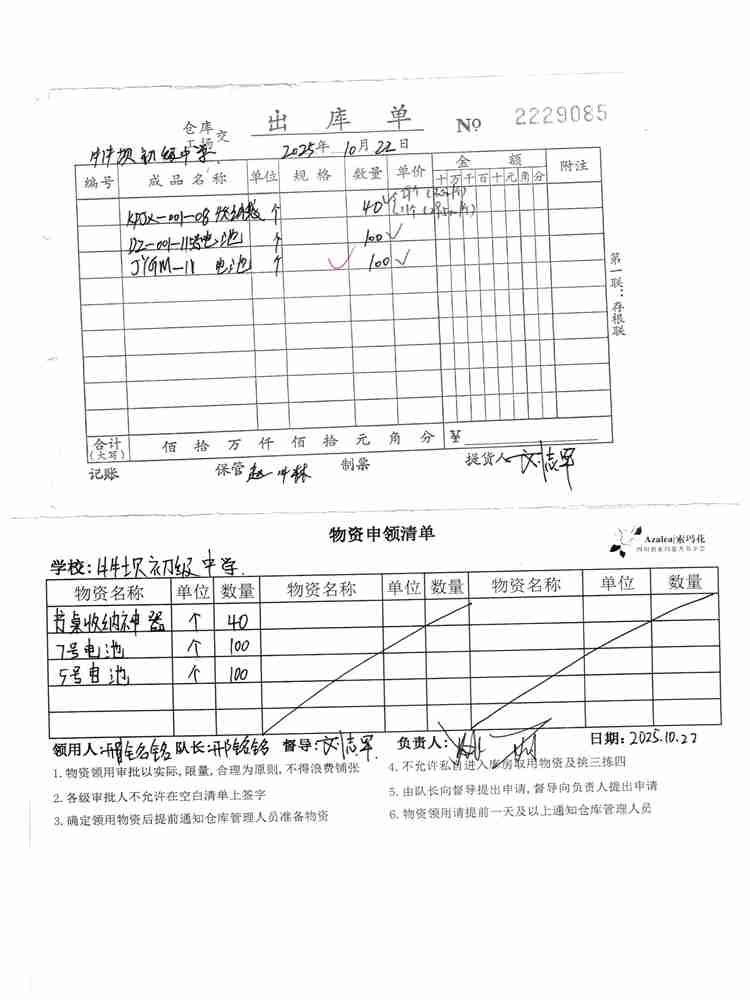 出库单
仓库
工场 交
№ 2229085
坝初级中学
2025年 10月 22日
编号 成品名称 单位 规格 数量 单价 金额 附注
十万千百十元角分
KPJX-001-08 收纳 个 40
DZ-001-11 电池 个 100 ✓
JYGM-11 电池 个 100 ✓
第一联：存根联
合计（大写） 佰 拾 万 仟 佰 拾 元 角 分 ¥
记账 保管 制票 提货人 刘志军
物资申领清单
Azalea|索玛花
学校: 坝初级中学
物资名称 单位 数量 物资名称 单位 数量 物资名称 单位 数量
书桌收纳神器 个 40
7号电池 个 100
5号电池 个 100
领用人: 队长: 督导: 刘志军 负责人: 日期: 2025.10.22
1.物资领用审批以实际,限量,合理为原则,不得浪费铺张
2.各级审批人不允许在空白清单上签字
3.确定领用物资后提前通知仓库管理人员准备物资
4.不允许私自进入库房取用物资及挑三拣四
5.由队长向督导提出申请,督导向负责人提出申请
6.物资领用请提前一天及以上通知仓库管理人员